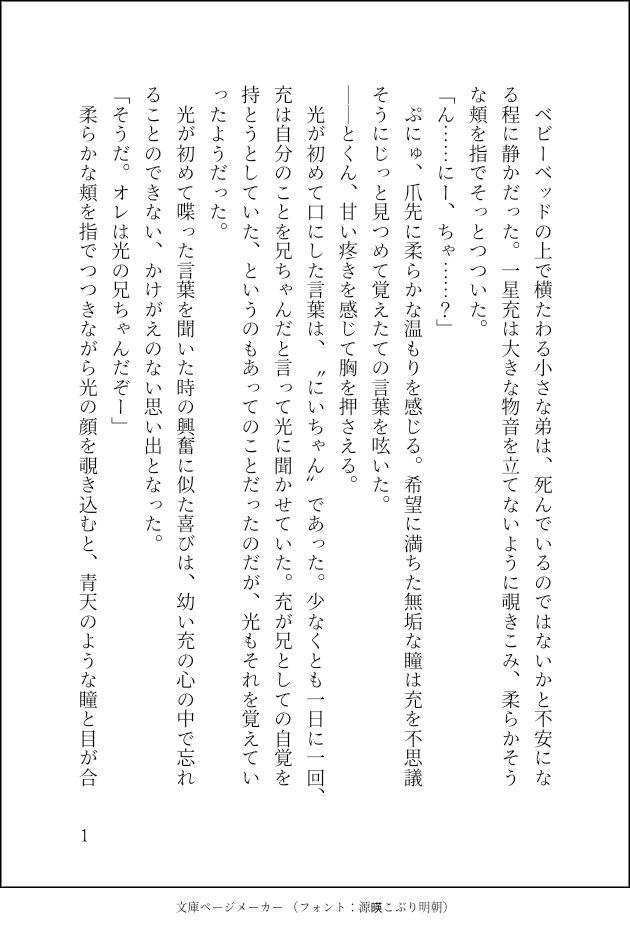 ベビーベッドの上で横たわる小さな弟は、死んでいるのではないかと不安にな
る程に静かだった。一星充は大きな物音を立てないように覗きこみ、柔らかそう
な頬を指でそっとつついた。
「ん……にー、ちゃ……？」
ぷにゅ、爪先に柔らかな温もりを感じる。希望に満ちた無垢な瞳は充を不思議
そうにじっと見つめて覚えたての言葉を呟いた。
――とくん、甘い疼きを感じて胸を押さえる。
光が初めて口にした言葉は、〝にいちゃん〟であった。少なくとも一日に一回、
充は自分のことを兄ちゃんだと言って光に聞かせていた。充が兄としての自覚を
持とうとしていた、というのもあってのことだったのだが、光もそれを覚えてい
ったようだった。
光が初めて喋った言葉を聞いた時の興奮に似た喜びは、幼い充の心の中で忘れ
ることのできない、かけがえのない思い出となった。
「そうだ。オレは光の兄ちゃんだぞー」
柔らかな頬を指でつつきながら光の顔を覗き込むと、青天のような瞳と目が合
1
文庫ページメーカー（フォント：源暎こぶり明朝）